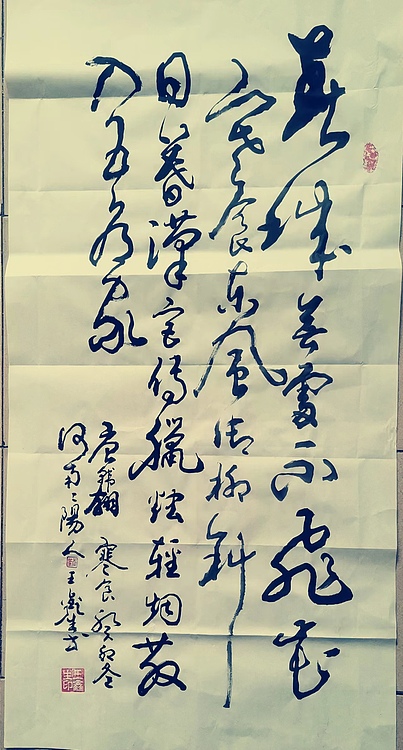 春城無處不飛花
寒食東風御柳斜
日暮漢宮傳臘燭輕烟散
入五侯家
唐韩翃 寒食 癸卯冬
河南々陽人王鑫生书